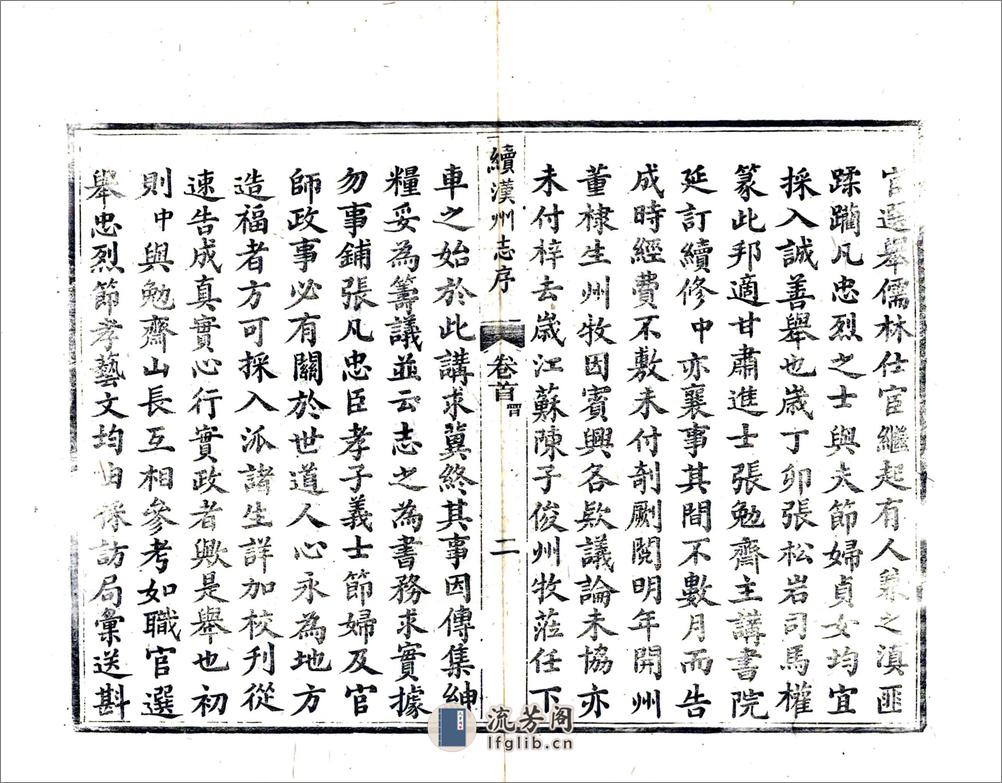 官選舉儒林仕宦繼起有人兼之滇匪
蹂躪凡忠烈之士與夫節婦貞女均宜
採入誠善舉也歲丁卯張松岩司馬權
篆此邦適甘肅進士張勉齋主講書院
延訂續修中亦襄事其間不數月而告
成時經費不敷未付剞劂閱明年開州
董棣生州牧因賓興各欵議論未協亦
未付梓去歲江蘇陳子俊州牧蒞任下
續漢州志序
卷首
二
車之始於此講求冀終其事因傳集紳
糧妥為籌議並云志之為書務求實據
勿事鋪張凡忠臣孝子義士節婦及官
師政事必有關於世道人心永為地方
造福者方可採入派諸生詳加校刊從
速告成真實心行實政者歟是舉也初
則中與勉齋山長互相參考如職官選
舉忠烈節孝藝文均由採訪局彙送斟
流芳阁
lfglib.cn